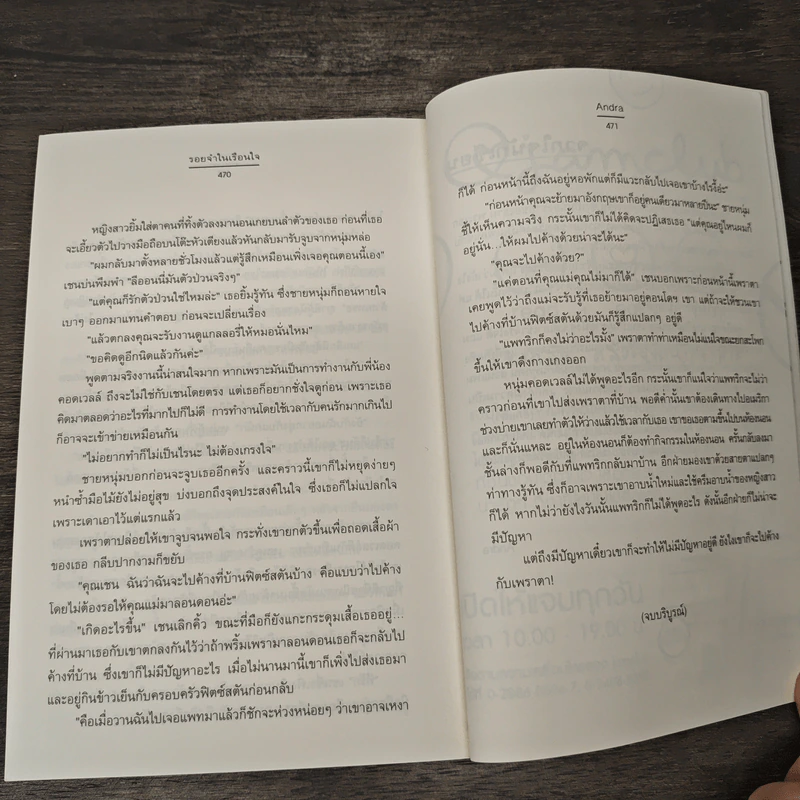 รอยจำในเรือนใจ
470
หญิงสาวยิ้มใส่ตาคนที่ทิ้งตัวลงมานอนเกยบนลำตัวของเธอ ก่อนที่เธอ
จะเอี้ยวตัวไปวางมือถือบนโต๊ะหัวเตียงแล้วหันกลับมารับจูบจากหนุ่มหล่อ
“ผมกลับมาตั้งหลายชั่วโมงแล้วแต่รู้สึกเหมือนเพิ่งเจอคุณตอนนี้เอง”
เชนบ่นพึมพำ “ลีออนนี่มันตัวป่วนจริงๆ”
“แต่คุณก็รักตัวป่วนใช่ไหมล่ะ” เธอยิ้มรู้ทัน ซึ่งชายหนุ่มก็ถอนหายใจ
เบาๆ ออกมาแทนคำตอบ ก่อนจะเปลี่ยนเรื่อง
“แล้วตกลงคุณจะรับงานดูแกลลอรี่ให้หมอนั่นไหม”
“ขอคิดดูอีกนิดแล้วกันค่ะ”
พูดตามจริงงานนี้น่าสนใจมาก หากเพราะมันเป็นการทำงานกับพี่น้อง
คอดเวลล์ ถึงจะไม่ใช่กับเชนโดยตรง แต่เธอก็อยากชั่งใจดูก่อน เพราะเธอ
คิดมาตลอดว่าอะไรที่มากไปก็ไม่ดี การทำงานโดยใช้เวลากับคนรักมากเกินไป
ก็อาจจะเข้าข่ายเหมือนกัน
“ไม่อยากทำก็ไม่เป็นไรนะ ไม่ต้องเกรงใจ”
ชายหนุ่มบอกก่อนจะจูบเธออีกครั้ง และคราวนี้เขาก็ไม่หยุดง่ายๆ
หนำซ้ำมือไม้ยังไม่อยู่สุข บ่งบอกถึงจุดประสงค์ในใจ ซึ่งเธอก็ไม่แปลกใจ
เพราะเดาเอาไว้แต่แรกแล้ว
เพราตาปล่อยให้เขาจูบจนพอใจ กระทั่งเขายกตัวขึ้นเพื่อถอดเสื้อผ้า
ของเธอ กลีบปากงามก็ขยับ
“คุณเชน ฉันว่าฉันจะไปค้างที่บ้านฟิตซ์สตันบ้าง คือแบบว่าไปค้าง
โดยไม่ต้องรอให้คุณแม่มาลอนดอนอ่ะ”
“เกิดอะไรขึ้น” เชนเลิกคิ้ว ขณะที่มือก็ยังแกะกระดุมเสื้อเธออยู่...
ที่ผ่านมาเธอกับเขาตกลงกันไว้ว่าถ้าพริ้มเพรามาลอนดอนเธอก็จะกลับไป
ค้างที่บ้าน ซึ่งเขาก็ไม่มีปัญหาอะไร เมื่อไม่นานมานี้เขาก็เพิ่งไปส่งเธอมา
และอยู่กินข้าวเย็นกับครอบครัวฟิตซ์สตันก่อนกลับ
“คือเมื่อวานฉันไปเจอแพทมาแล้วก็ชักจะห่วงหน่อยๆ ว่าเขาอาจเหงา
Andra
471
ก็ได้ ก่อนหน้านี้ถึงฉันอยู่หอพักแต่ก็มีแวะกลับไปเจอเขาบ้างไรงี้อ่ะ”
“ก่อนหน้าคุณจะย้ายมาอังกฤษเขาก็อยู่คนเดียวมาหลายปีนะ” ชายหนุ่ม
ชี้ให้เห็นความจริง กระนั้นเขาก็ไม่ได้คิดจะปฏิเสธเธอ “แต่คุณอยู่ไหนผมก็
อยู่นั่น...ให้ผมไปค้างด้วยน่าจะได้นะ”
“คุณจะไปค้างด้วย?”
“แค่ตอนที่คุณแม่คุณไม่มาก็ได้” เชนบอกเพราะก่อนหน้านี้เพราตา
เคยพูดไว้ว่าถึงแม่จะรับรู้ที่เธอย้ายมาอยู่คอนโดฯ เขา แต่ถ้าจะให้ชวนเขา
ไปค้างที่บ้านฟิตซ์สตันด้วยมันก็รู้สึกแปลกๆ อยู่ดี
“แพทริกก็คงไม่ว่าอะไรมั้ง” เพราตาทำท่าเหมือนไม่แน่ใจขณะยกสะโพก
ขึ้นให้เขาดึงกางเกงออก
หนุ่มคอดเวลล์ไม่ได้พูดอะไรอีก กระนั้นเขาก็แน่ใจว่าแพทริกจะไม่ว่า
คราวก่อนที่เขาไปส่งเพราตาที่บ้าน พอดีค่ำนั้นเขาต้องเดินทางไปอเมริกา
ช่วงบ่ายเขาเลยทำตัวให้ว่างแล้วใช้เวลากับเธอ เขาขอเธอตามขึ้นไปบนห้องนอน
และก็นั่นแหละ อยู่ในห้องนอนก็ต้องทำกิจกรรมในห้องนอน ครั้นกลับลงมา
ชั้นล่างก็พอดีกับที่แพทริกกลับมาบ้าน อีกฝ่ายมองเขาด้วยสายตาแปลกๆ
ท่าทางรู้ทัน ซึ่งก็อาจเพราะเขาอาบน้ำใหม่และใช้ครีมอาบน้ำของหญิงสาว
ก็ได้ หากไม่ว่ายังไงวันนั้นแพทริกก็ไม่ได้พูดอะไร ดังนั้นอีกฝ่ายก็ไม่น่าจะ
มีปัญหา
แต่ถึงมีปัญหาเดี๋ยวเขาก็จะทำให้ไม่มีปัญหาอยู่ดี ยังไงเขาก็จะไปค้าง
กับเพราตา!
(จบบริบูรณ์)